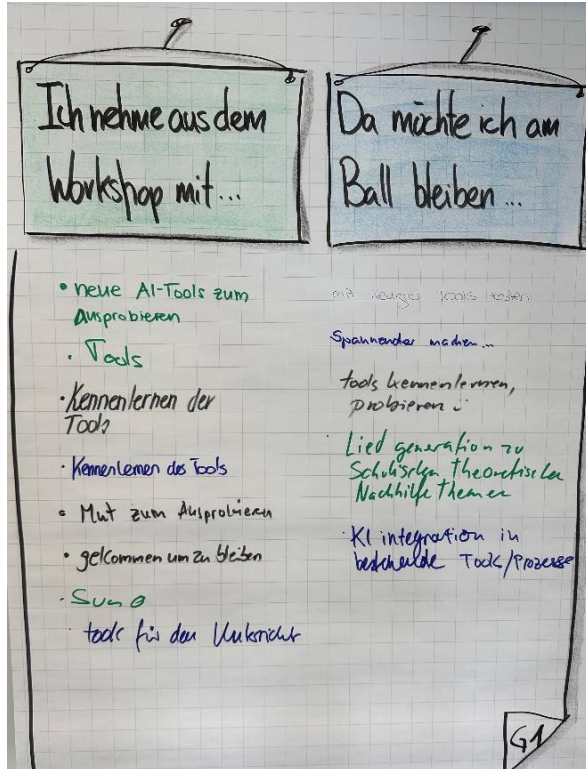 Ich nehme aus dem
Workshop mit...
Da möchte ich am
Ball bleiben...
• neue AI-Tools zum
Ausprobieren
• Tools
• Kennenlernen der
Tools
• Kennenlernen des Tools
• Mut zum Ausprobieren
• gekommen um zu bleiben
• Suno
• tools für den Unterricht
mit tools testen
Spannender machen...
tools kennenlernen,
probieren
• Lied generation zu
Schulischen theoretischen
Nachhilfe Themen
KI integration in
bestehende Tools/Prozesse
G1